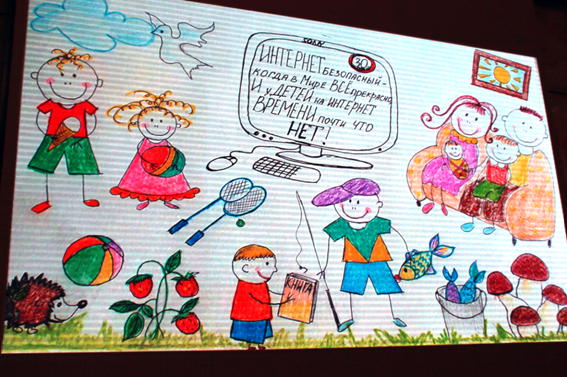 SONY
30
ИНТЕРНЕТ БЕЗОПАСНЫЙ -
когда в Мире ВСЕ прекрасно
И у ДЕТЕЙ на ИНТЕРНЕТ
ВРЕМЕНИ почти что
НЕТ!
КНИГА